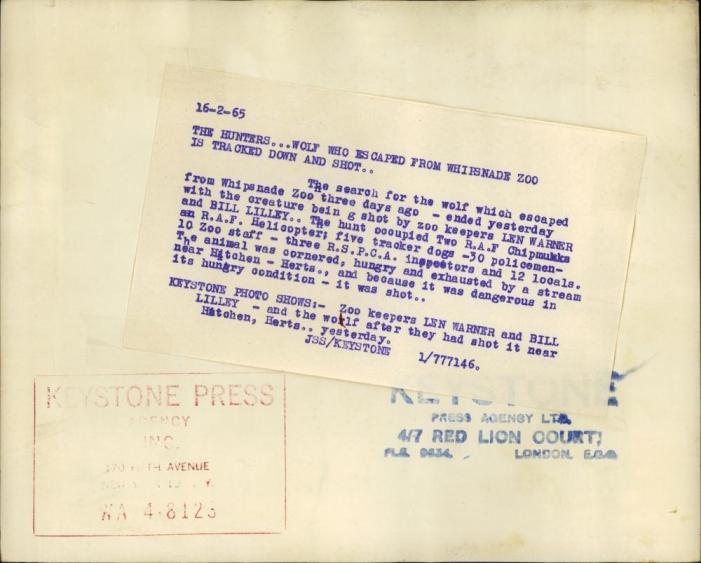 16-2-65
THE HUNTERS...WOLF WHO ESCAPED FROM WHIPSNADE ZOO
IS TRACKED DOWN AND SHOT..
The search for the wolf which escaped
from Whipsnade Zoo three days ago - ended yesterday
with the creature bein g shot by zoo keepers LEN WARNER
and BILL LILLEY.. The hunt occupied Two R.A.F Chipmukks
an R.A.F. Helicopter; five tracker dogs -30 policemen-
10 Zoo staff - three R.S.P.C.A. inspectors and 12 locals.
The animal was cornered, hungry and exhausted by a stream
near Hitchen - Herts., and because it was dangerous in
its hungry condition - it was shot..
KEYSTONE PHOTO SHOWS:- Zoo keepers LEN WARNER and BILL
LILLEY - and the wolf after they had shot it near
Hitchen, Herts.. yesterday.
JSS/KEYSTONE 1/777146.
KEYSTONE PRESS
AGENCY
INC.
170 FIFTH AVENUE
WA 4-8123
KEYSTONE
PRESS AGENCY LTD.
4/7 RED LION COURT,
FLE. LONDON, E.C.4